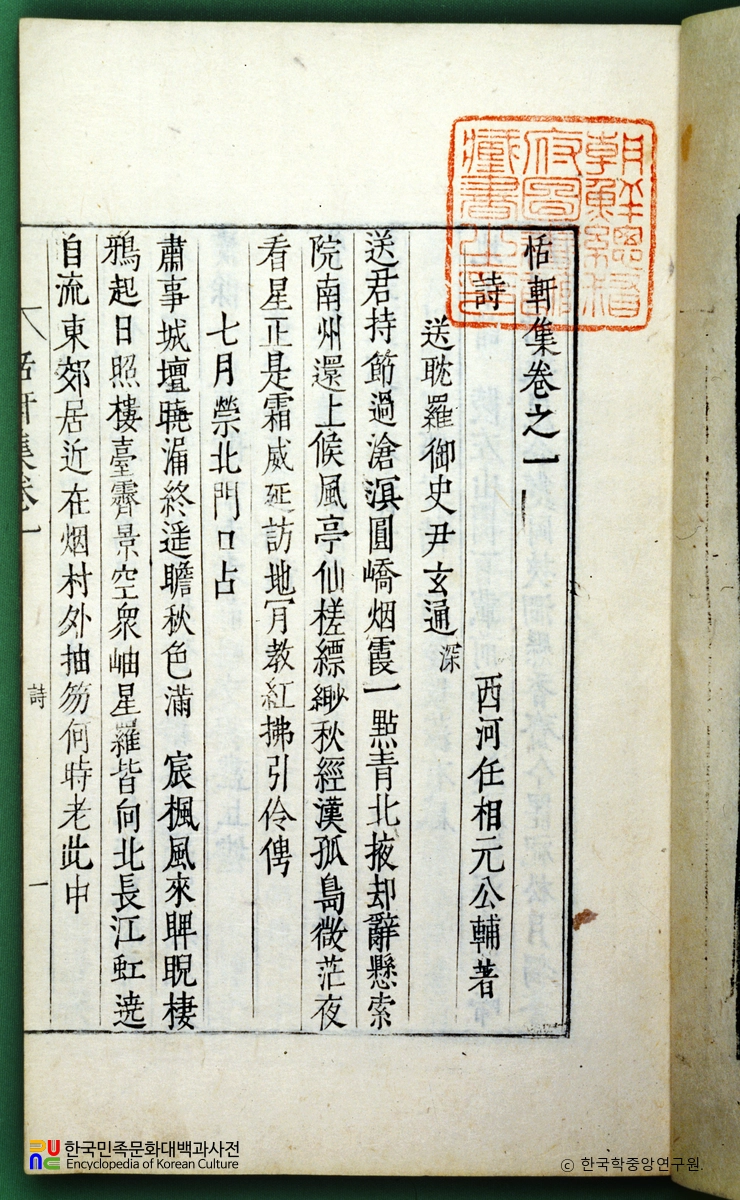 恬軒集卷之一
詩
西河任相元公輔著
送耽羅御史尹玄通深
送君持節過滄溟圓嶠烟霞一點青北掖却辭懸索
院南州還上候風亭仙槎縹緲秋經漢孤島微茫夜
看星正是霜威延訪地肎教紅拂引伶俜
七月禜北門口占
肅事城壇曉漏終遥瞻秋色滿宸楓風來睥睨棲
鴉起日照樓臺霽景空衆岫星羅皆向北長江虹遶
自流東郊居近在烟村外抽笏何時老此中
恬軒集卷一
詩
一
朝鮮總督
府圖書館
藏書之印
한국민족문화대백과사전
Encyclopedia of Korean Culture
ⓒ 한국학중앙연구원.